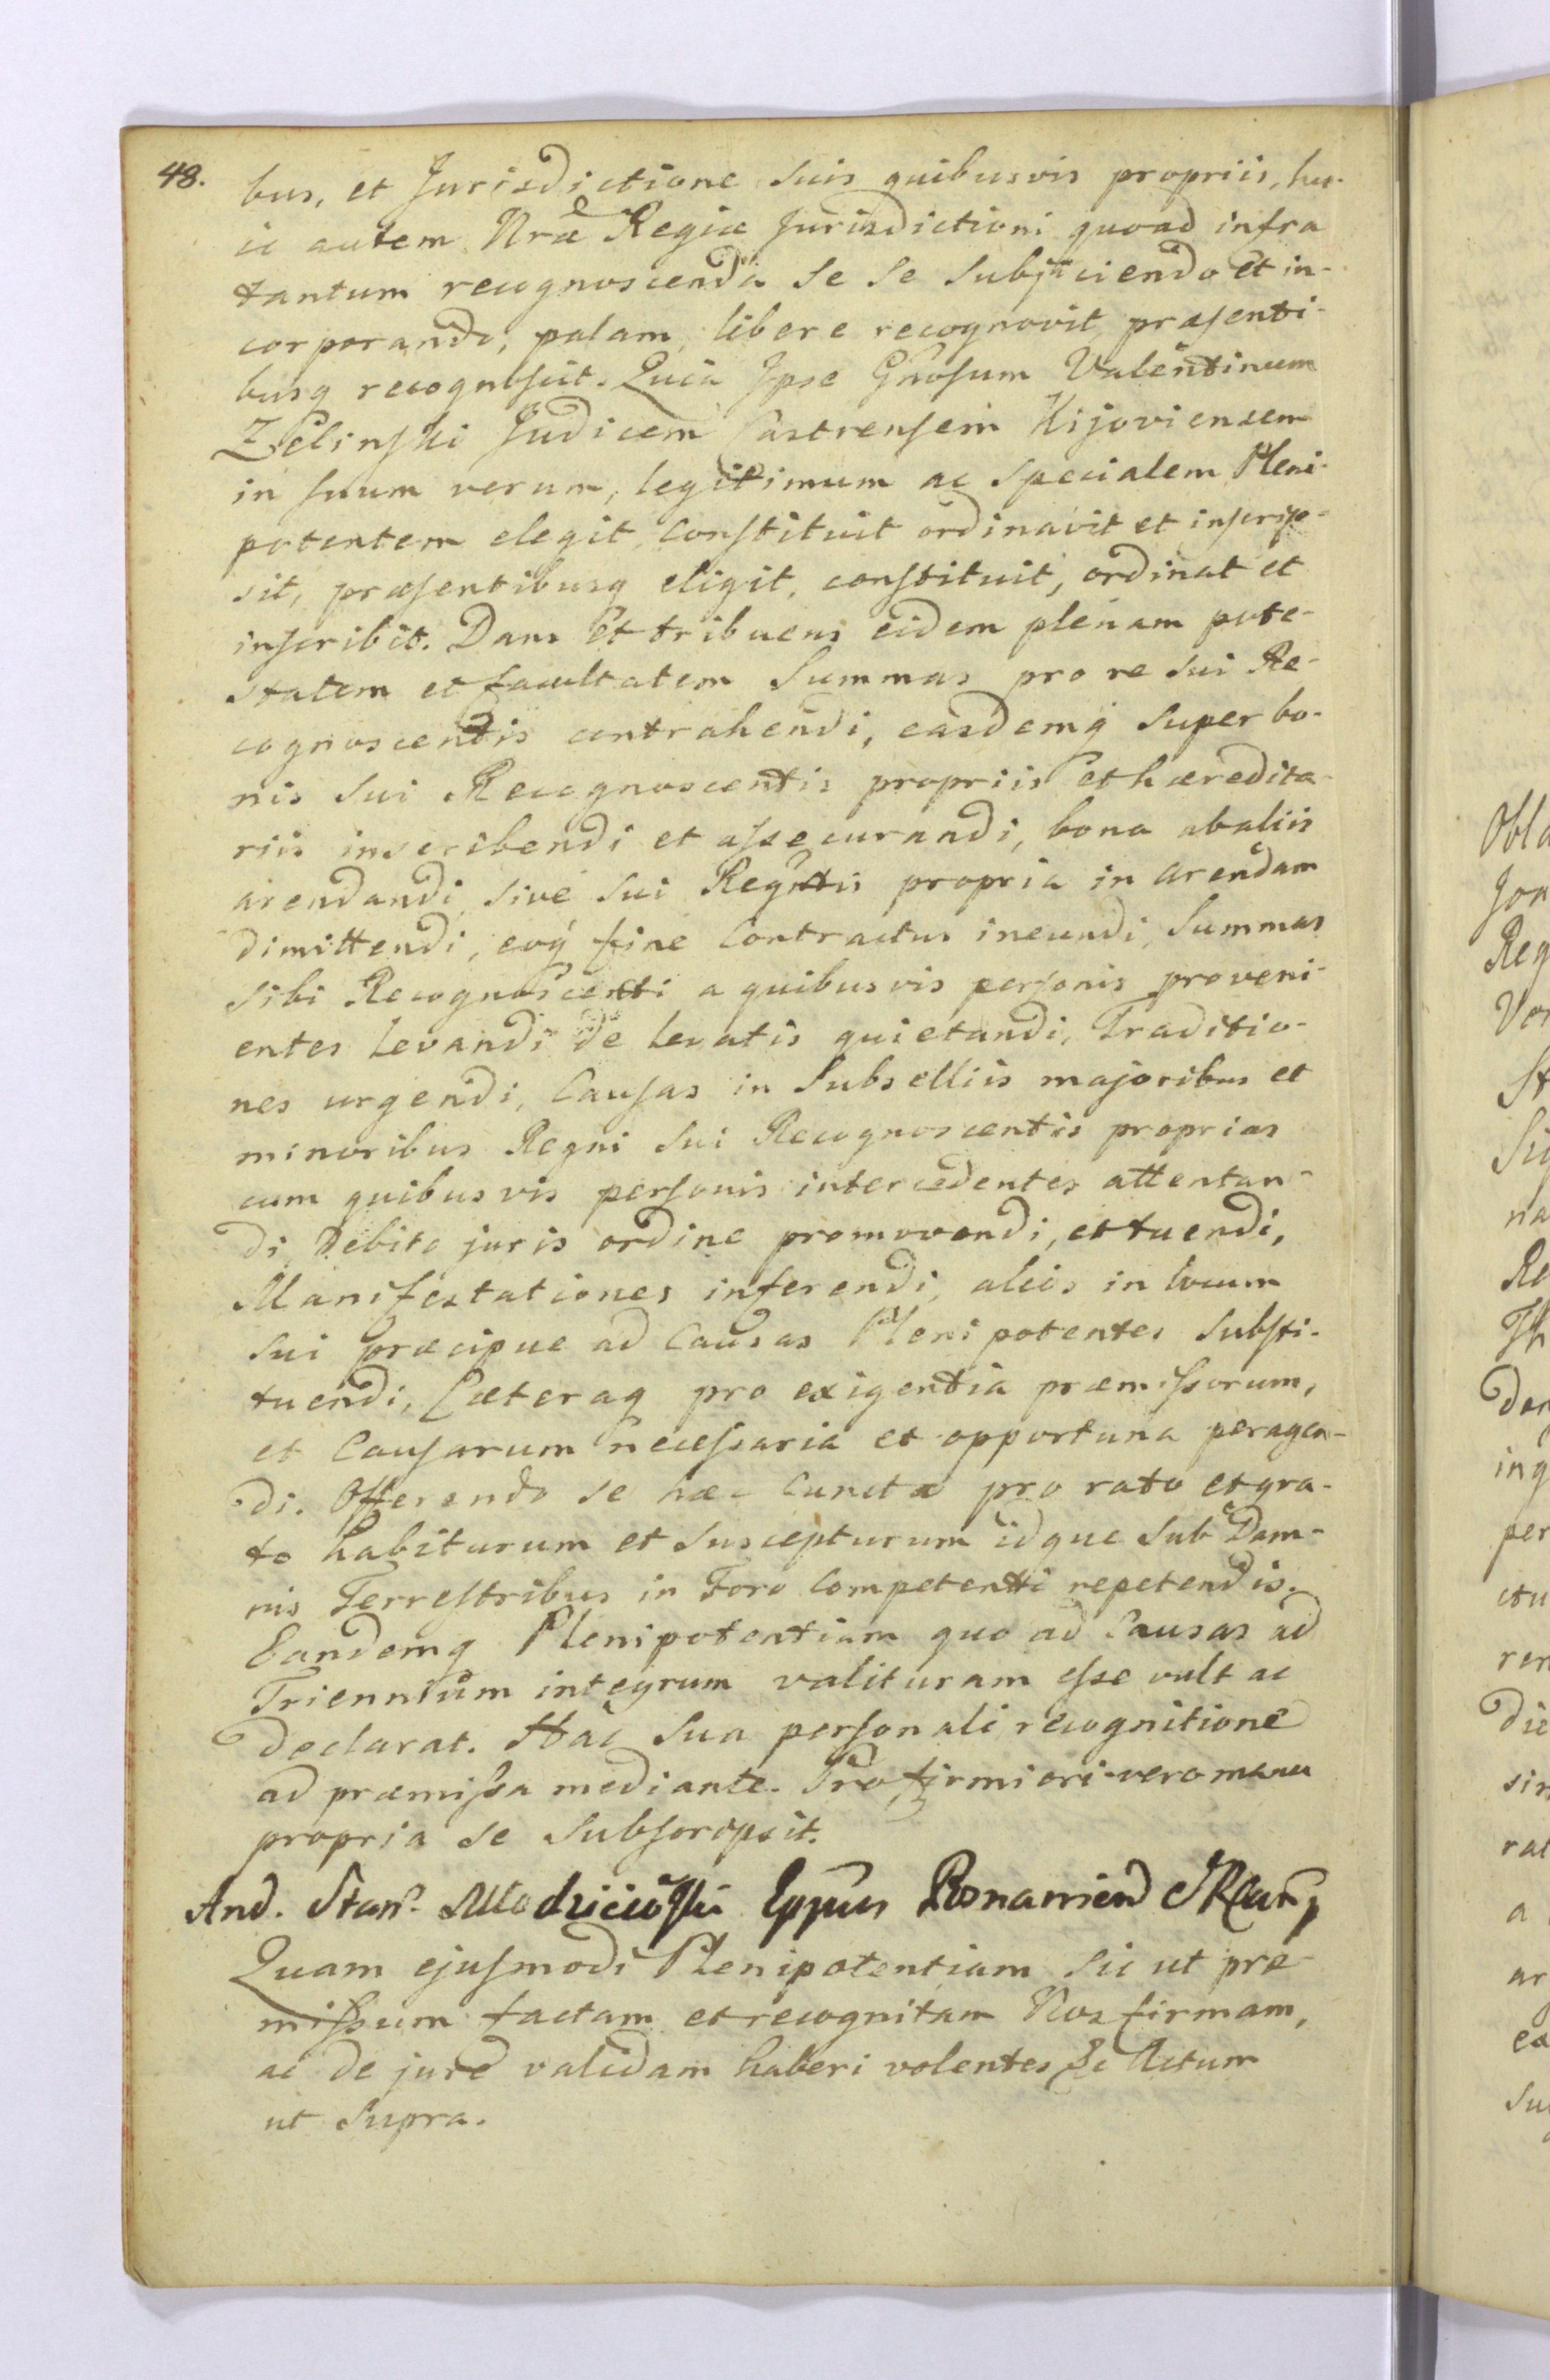 48.
bus, et Jurisdictione suis quibusvis propriis, hu-
ic autem Nræ Regiæ Jurisdictioni quoad infra
tantum recognoscenda se se subjiciendo et in-
corporando, palam, libere recognovit præsenti-
busq recognoscit. Quia Ipse Gnosum Valentinum
Zielinski Judicem Castrensem Kijoviensem
in suum verum, legitimum ac specialem Pleni-
potentem elegit, constituit ordinavit et inscrip-
sit, præsentibusq eligit, constituit, ordinat et
inscribit. Dans et tribuens eidem plenam pote-
statem et facultatem Summas pro re sui Re-
cognoscentis contrahendi, easdemq super bo-
nis sui Recognoscentis propriis et hæredita-
riis inscribendi et assecurandi, bona ab aliis
arendandi, sive sui Regntis propria in arendam
dimittendi, eoq fine Contractus ineundi, Summas
sibi Recognoscenti a quibusvis personis proveni-
entes levandi de levatis quietandi, Traditio-
nes urgendi, Causas in Subselliis majoribus et
minoribus Regni sui Recognoscentis proprias
cum quibusvis personis intercedentes attentan-
di, debito juris ordine promovendi, et tuendi,
Manifestationes inferendi, alios in locum
sui præcipue ad Causas Plenipotentes substi-
tuendi, Cæteraq pro exigentia præmissorum,
et Causarum necessaria et opportuna peragen-
di. Offerendo se hæc cuncta pro rato et gra-
to habiturum et suscepturum idque sub Dam-
nis Terrestribus in Foro Competenti repetendis.
Eandemq Plenipotentiam quo ad Causas ad
Triennium integrum valituram esse vult ac
declarat. Hac sua personali recognitione
ad præmissa mediante. Pro firmiori vero manu
propria se subscripsit.
And. Stan. Młodziieiowski Eppus
Quam ejusmodi Plenipotentiam sic ut præ-
missum factam et recognitam Nos firmam,
ac de jure validam haberi volentes &c Actum
ut supra.
Obla
Joa
Reg
St
na
Re
ing
per
ctu
ren
die
sin
rat
a
ar
ea